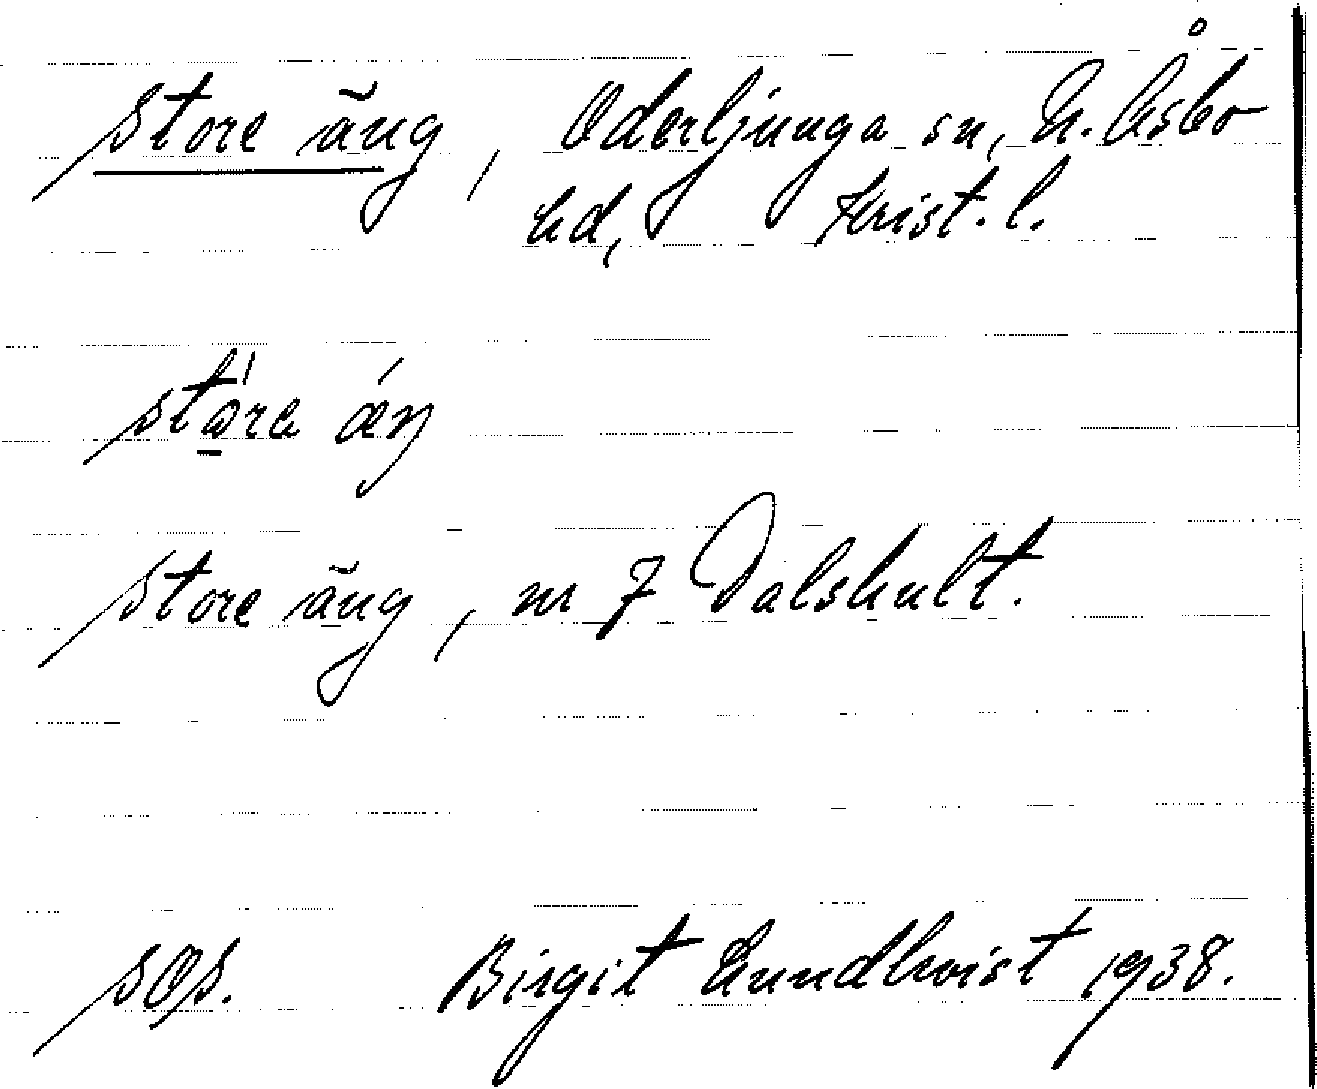 Store äng, Oderljunga sn, N. Åsbo
hd, Krist. l.
störa äŋ
Store äng, nr 7 Dalshult.
SOS. Birgit Lundkvist 1938.